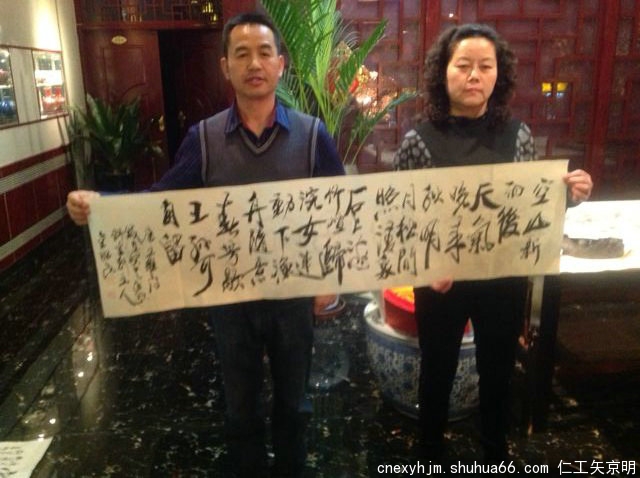 空山新
雨後
天氣
晚来
秋明
月松間
照清泉
石上流
竹喧歸
浣女蓮
動下漁
舟随意
春芳歇
王孫可
自留
唐王維诗
cnexyhjm.shuhua66.com 仁工矢京明